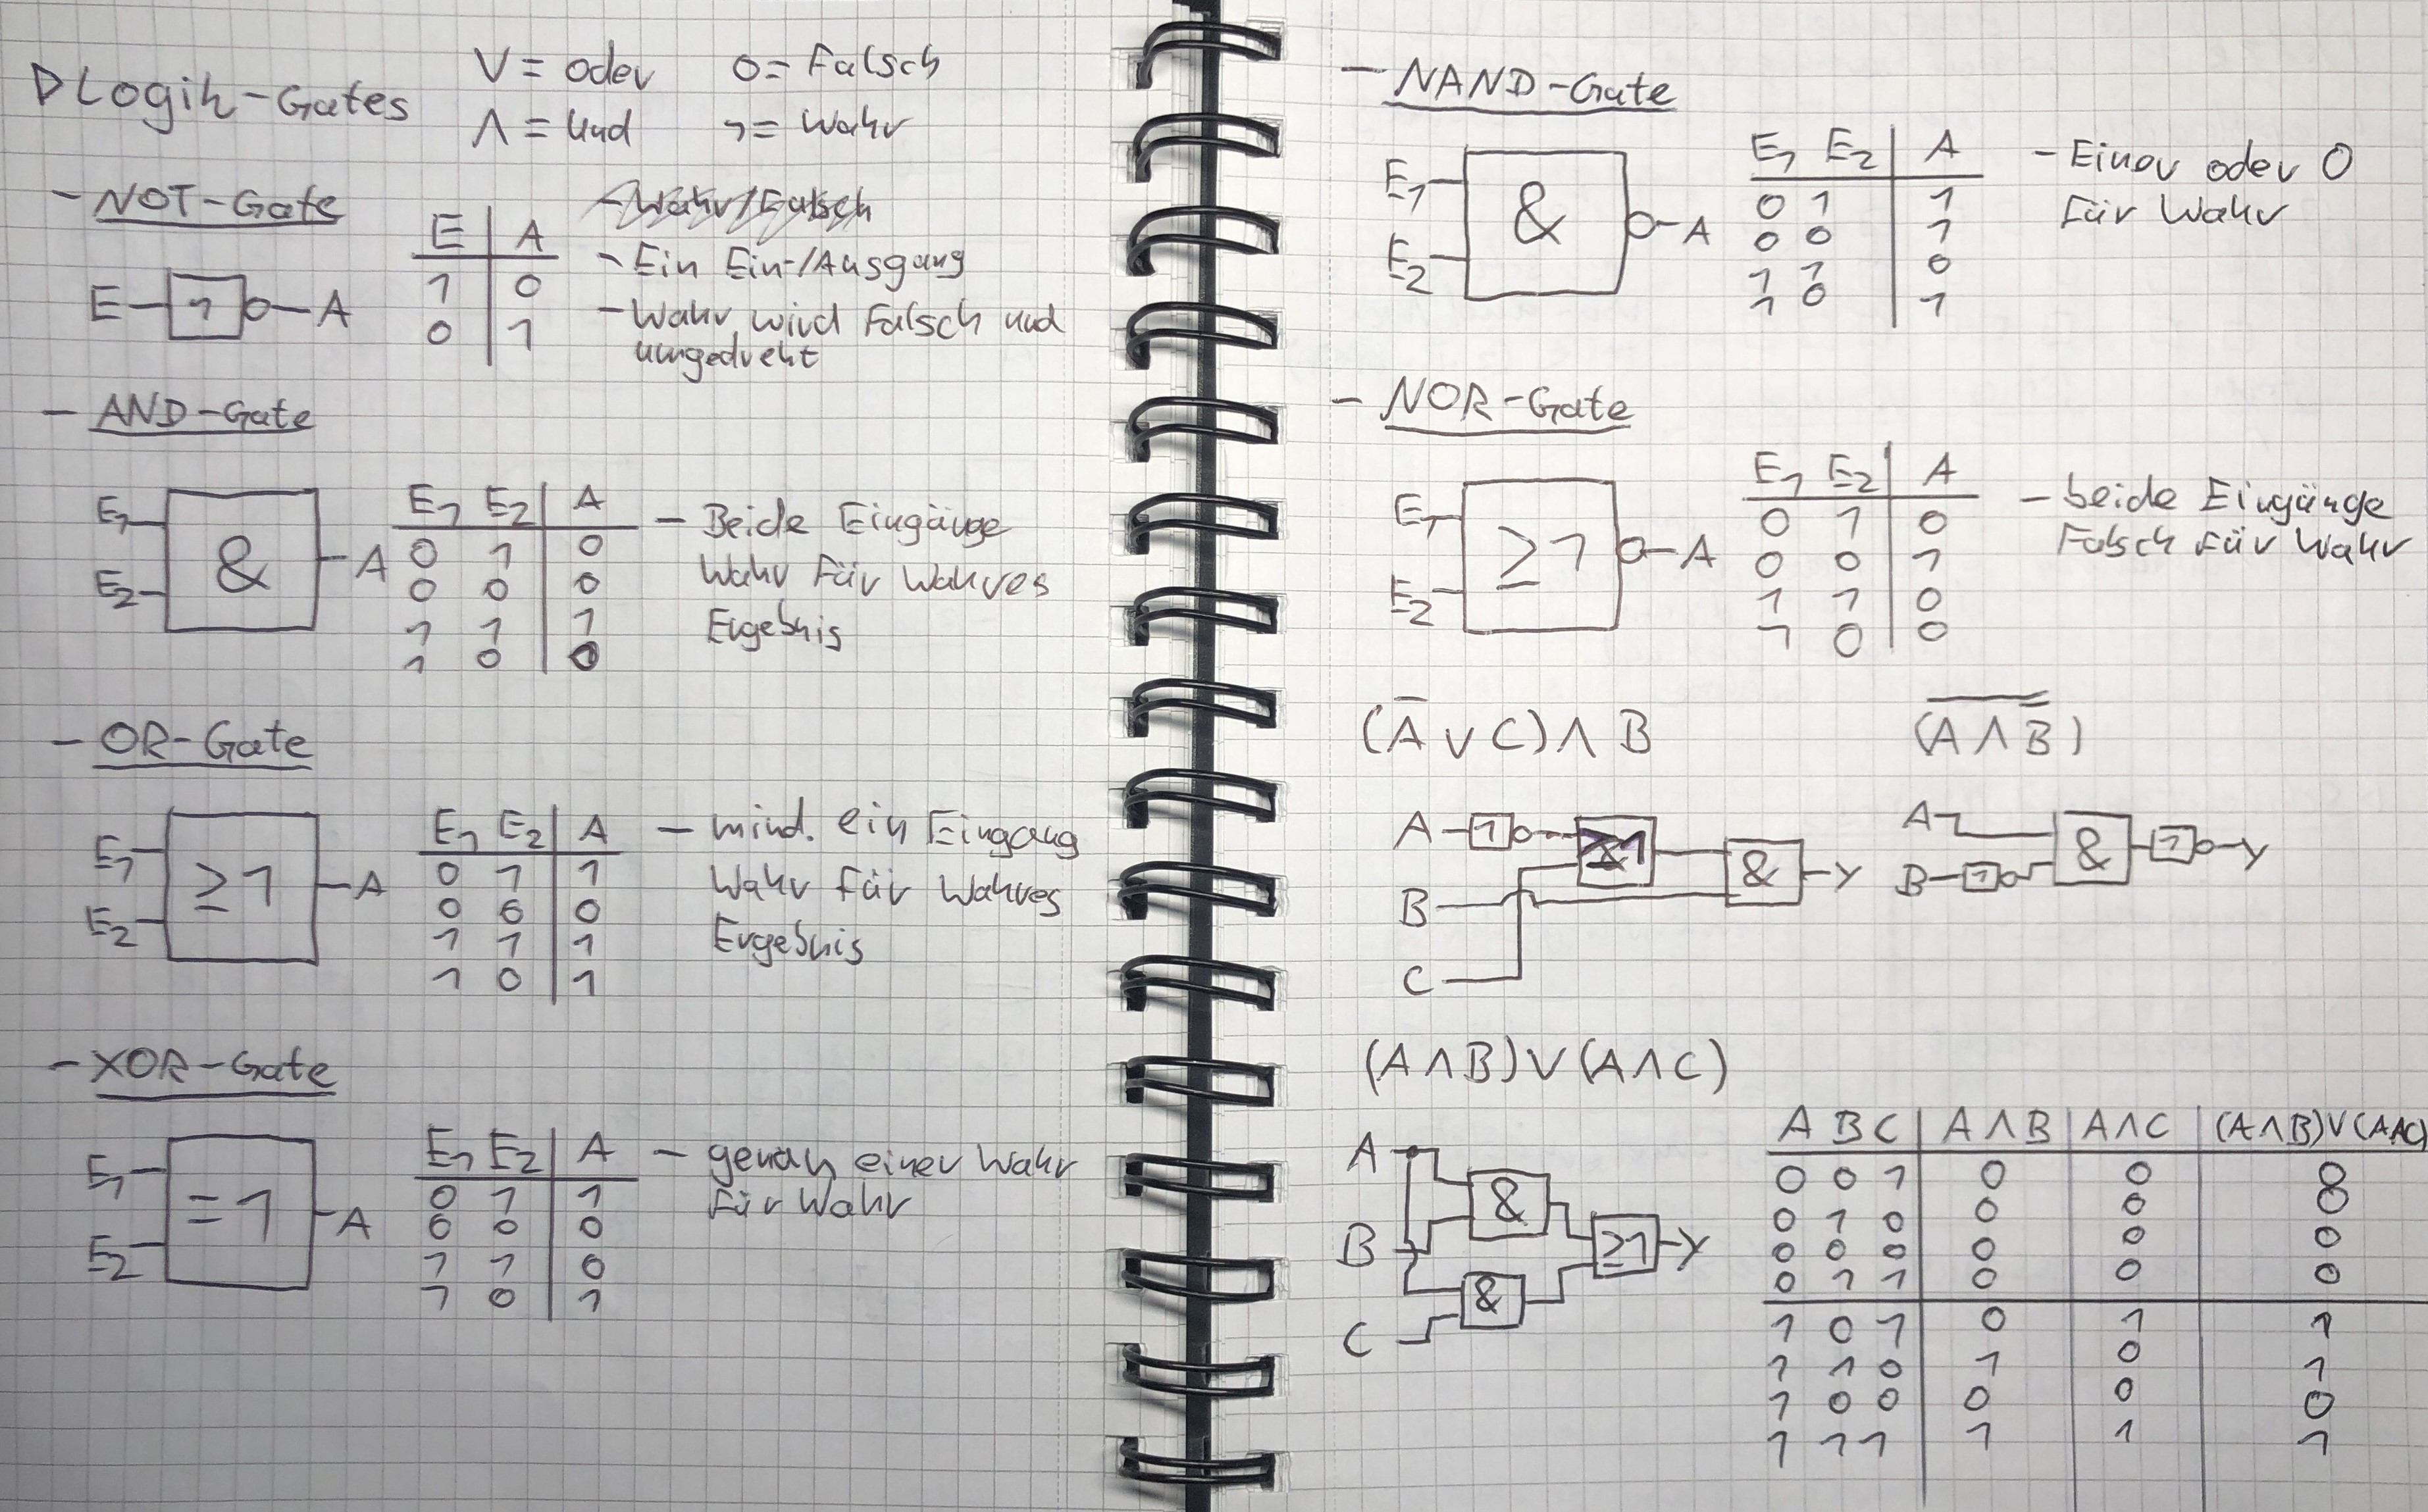 Logik-Gates
V = oder 0 = Falsch
Λ = Und 1 = Wahr
- NOT-Gate
E 1 A
E | A
1 | 0
0 | 1
- Ein Ein-/Ausgang
- Wahr wird Falsch und
umgedreht
- AND-Gate
E1
E2
&
A
E1 E2 | A
0 1 | 0
0 0 | 0
1 1 | 1
1 0 | 0
- Beide Eingänge
Wahr für Wahres
Ergebnis
- OR-Gate
E1
E2
≥1
A
E1 E2 | A
0 1 | 1
0 0 | 0
1 1 | 1
1 0 | 1
- mind. ein Eingang
Wahr für Wahres
Ergebnis
- XOR-Gate
E1
E2
=1
A
E1 E2 | A
0 1 | 1
0 0 | 0
1 1 | 0
1 0 | 1
- genau einer Wahr
Für Wahr
- NAND-Gate
E1
E2
&
A
E1 E2 | A
0 1 | 1
0 0 | 1
1 1 | 0
1 0 | 1
- Einer oder 0
Für Wahr
- NOR-Gate
E1
E2
≥1
A
E1 E2 | A
0 1 | 0
0 0 | 1
1 1 | 0
1 0 | 0
- beide Eingänge
Falsch für Wahr
(A̅ ∨ C) ∧ B
A 1 ≥1
B & Y
C
(A̅ ̅∧̅ ̅B̿)
A & 1 Y
B 1
(A ∧ B) ∨ (A ∧ C)
A &
B ≥1 Y
C &
A B C | A ∧ B | A ∧ C | (A ∧ B) ∨ (A ∧ C)
0 0 1 | 0 | 0 | 0
0 1 0 | 0 | 0 | 0
0 0 0 | 0 | 0 | 0
0 1 1 | 0 | 0 | 0
1 0 1 | 0 | 1 | 1
1 1 0 | 1 | 0 | 1
1 0 0 | 0 | 0 | 0
1 1 1 | 1 | 1 | 1